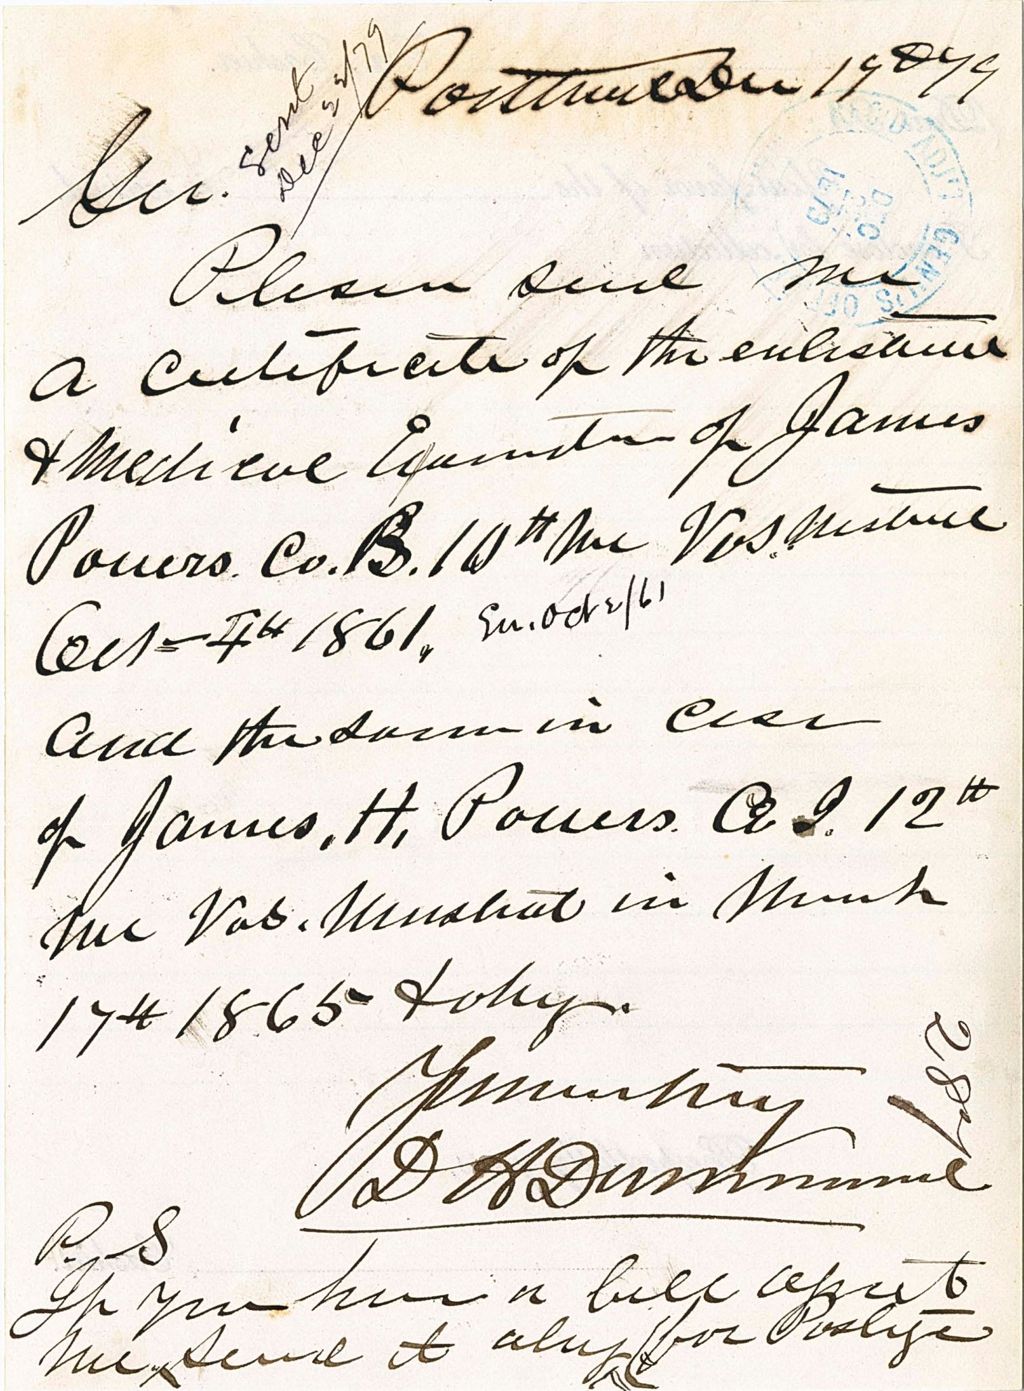 Sent
Dec 22/79
Portland Dec 19th 79
ADJT. GENL'S OFF
DEC
1879
Gen.
Please send me
a certificate of the enlistment
& Medical Examation of James
Powers. Co. B. 10th Me Vols. Mustered
Oct - 4th 1861, En. Oct 2/61
and the same in case
of James, H, Powers. Co I. 12th
Me Vols. Mustered in March
17th 1865 & oblige.
Yours truly
D H Drummond
287
P. S
If you have a bill against
me send it along for Postage